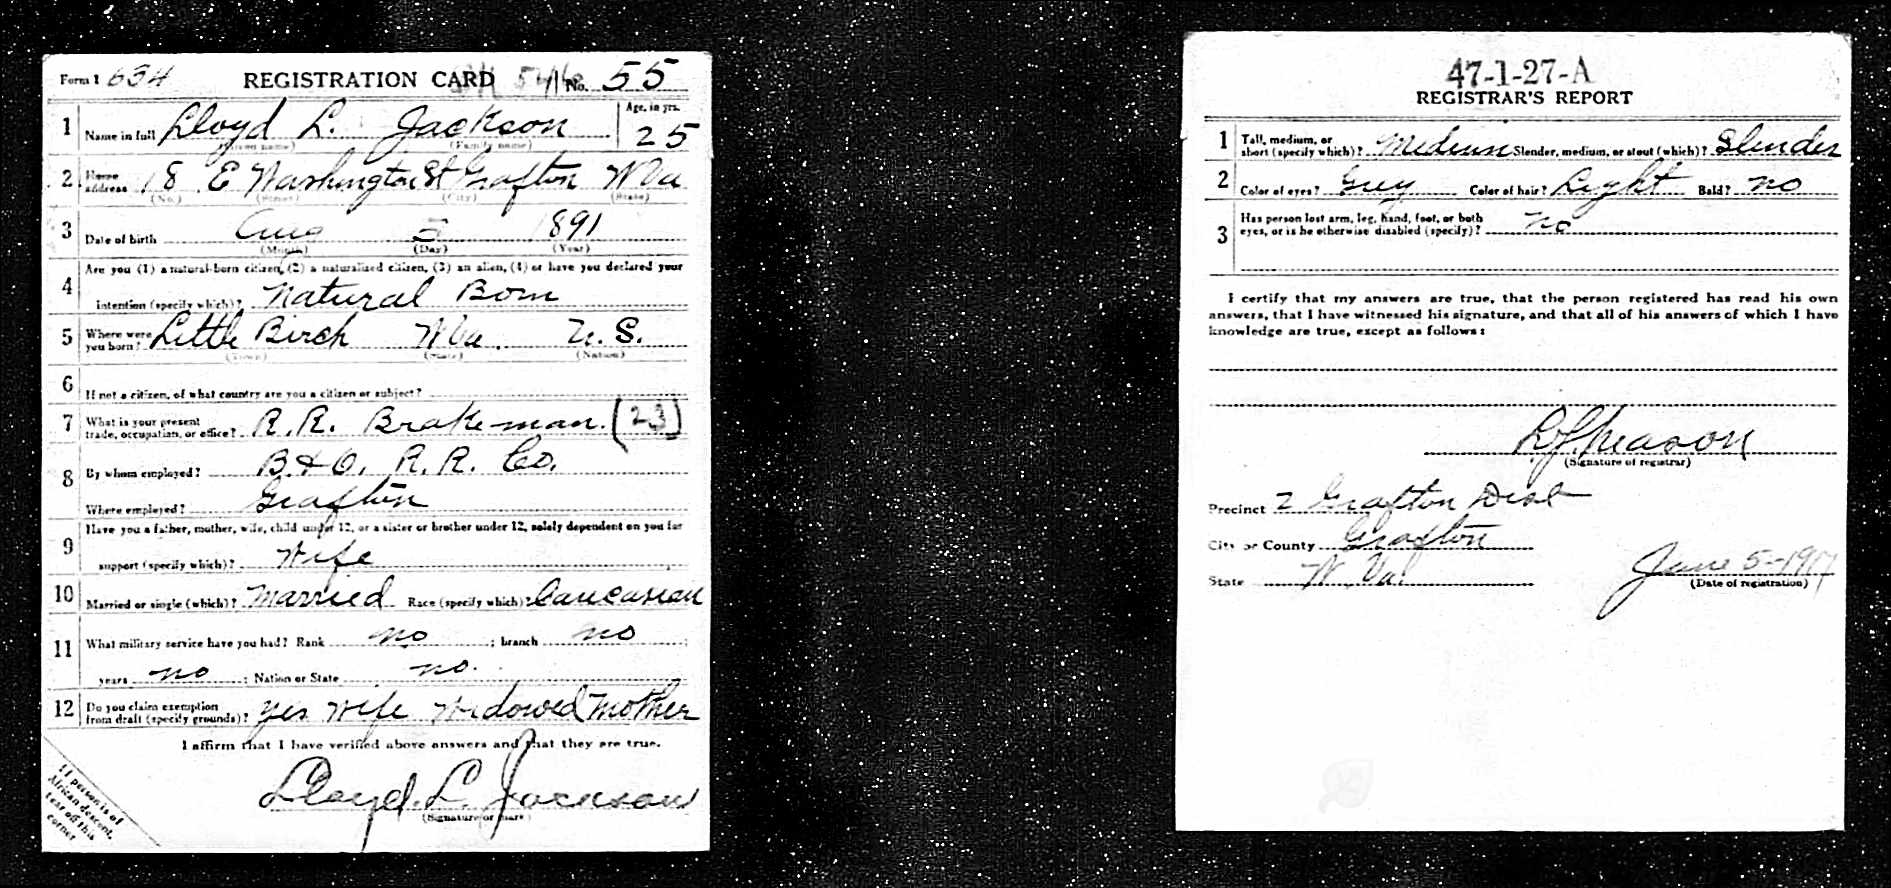 Form 1 634 REGISTRATION CARD No. 55
1 Name in full Lloyd L. Jackson Age, in yrs. 25
(Given name) (Family name)
2 Home address 18 E Washington St Grafton W Va
(No.) (Street) (City) (State)
3 Date of birth Aug 5 1891
(Month) (Day) (Year)
4 Are you (1) a natural-born citizen, (2) a naturalized citizen, (3) an alien, (4) or have you declared your
intention (specify which)? Natural Born
5 Where were you born? Little Birch W Va. U. S.
(Town) (State) (Nation)
6 If not a citizen, of what country are you a citizen or subject?
7 What is your present trade, occupation, or office? R. R. Brakeman. (23)
8 By whom employed? B & O. R. R. Co.
Where employed? Grafton
9 Have you a father, mother, wife, child under 12, or a sister or brother under 12, solely dependent on you for
support (specify which)? Wife
10 Married or single (which)? Married Race (specify which)? Caucasian
11 What military service have you had? Rank no ; branch no ;
years no ; Nation or State no.
12 Do you claim exemption from draft (specify grounds)? yes wife widowed mother
I affirm that I have verified above answers and that they are true.
Lloyd. L. Jackson
(Signature or mark)
If person is of
African descent,
tear off this
corner
47-1-27-A
REGISTRAR'S REPORT
1 Tall, medium, or short (specify which)? Medium Slender, medium, or stout (which)? Slender
2 Color of eyes? Grey Color of hair? Light Bald? no
3 Has person lost arm, leg, hand, foot, or both
eyes, or is he otherwise disabled (specify)? no
I certify that my answers are true, that the person registered has read his own
answers, that I have witnessed his signature, and that all of his answers of which I have
knowledge are true, except as follows:
(Signature of registrar)
Precinct 2 Grafton Dist
City or County Grafton
State W. Va. June 5-1917
(Date of registration)